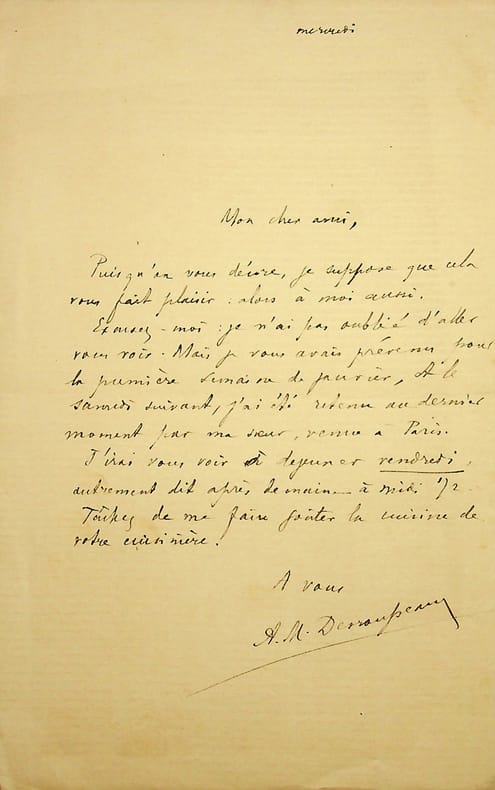 mercredi
Mon cher ami,
Puisqu'on vous décore, je suppose que cela
vous fait plaisir : alors à moi aussi.
Excusez-moi : je n'ai pas oublié d'aller
vous voir. Mais je vous avais prévenu pour
la première semaine de janvier, et le
samedi suivant, j'ai été retenu au dernier
moment par ma sœur, venue à Paris.
J'irai vous voir à dejeuner vendredi,
autrement dit après demain — à midi 1/2.
Tâchez de me faire goûter la cuisine de
votre cuisinière.
A vous
A. M. Desrousseaux